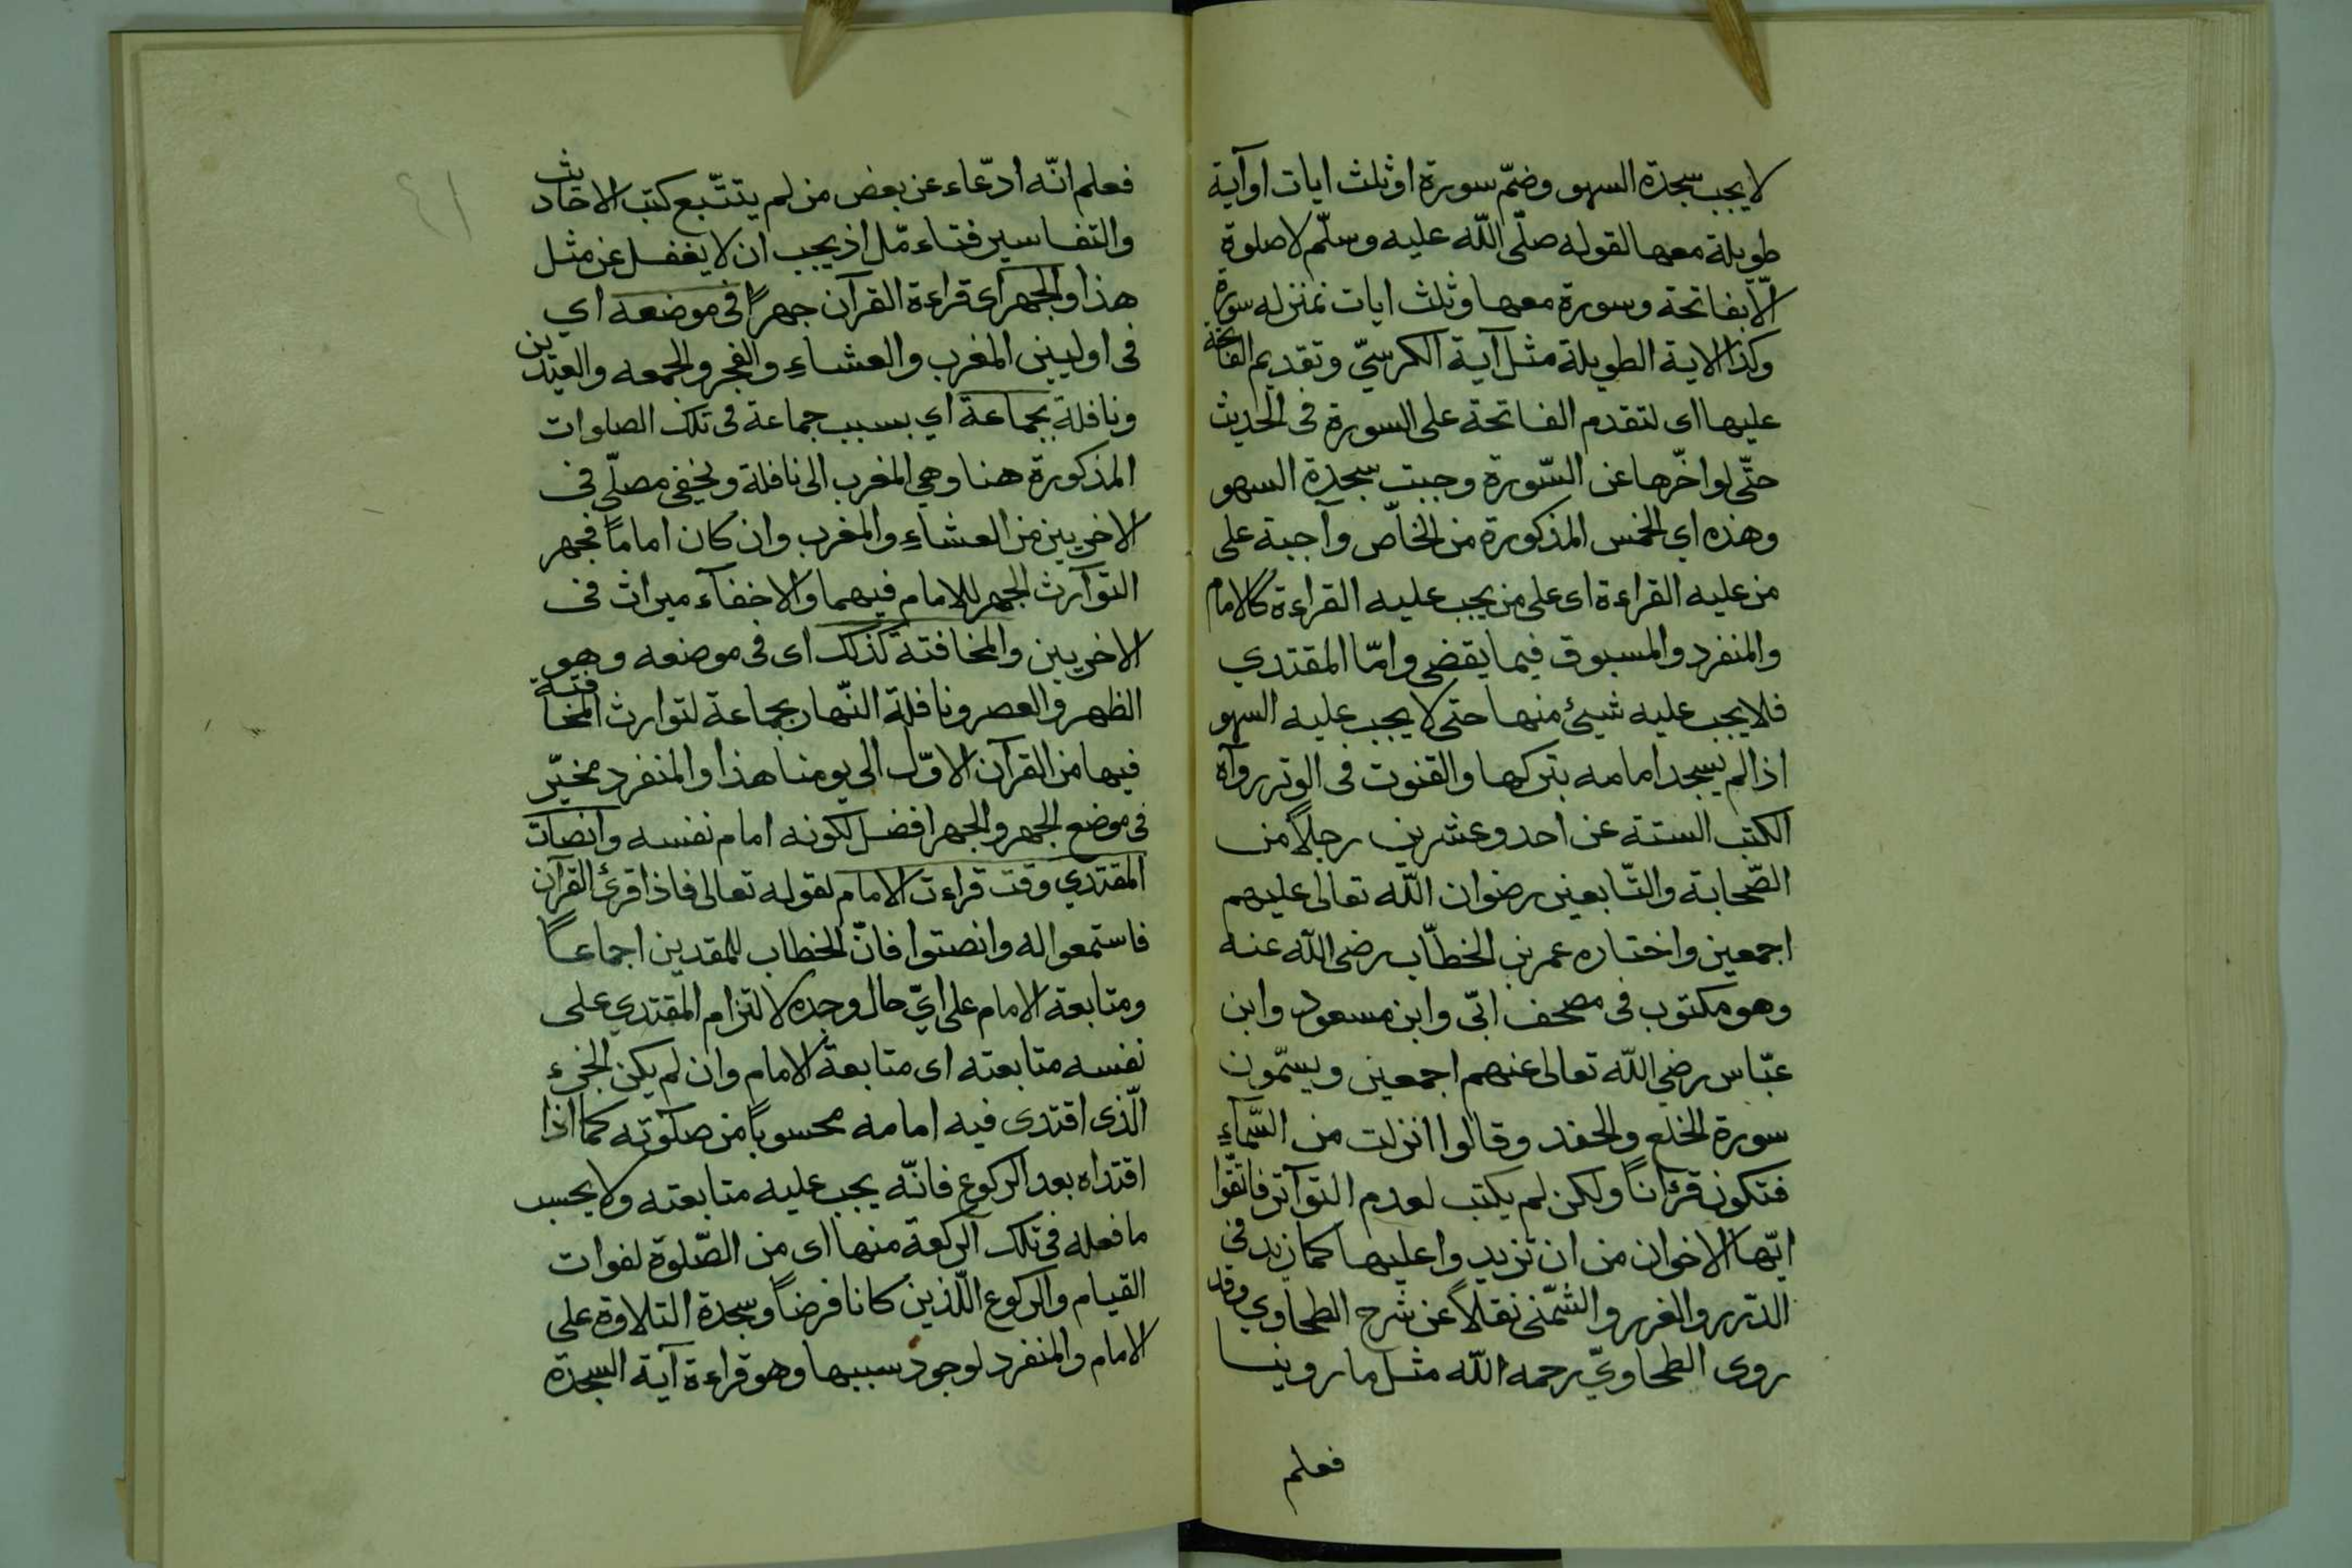 لا يجب سجدة السهو وضمّ سورة او ثلث ايات او آية
طويلة معها لقوله صلّى اللّه عليه وسلّم لا صلوة
الّا بفاتحة وسورة معها وثلث ايات بمنزله سورة
وكذا الاية الطويلة مثل آية الكرسيّ وتقديم الفاتحة
عليها اى لتقدم الفاتحة على السورة فى الحديث
حتّى لو اخّرها عن السّورة وجبت سجدة السهو
وهذه اي الخمس المذكورة من الخاصّ واجبة على
من عليه القراءة اى على من يجب عليه القراءة كالامام
والمنفرد والمسبوق فيما يقضى وامّا المقتدي
فلا يجب عليه شيئ منها حتى لا يجب عليه السهو
اذا لم يسجد امامه بتركها والقنوت فى الوتر رواه
الكتب الستة عن احد وعشرين رجلاً من
الصّحابة والتّابعين رضوان اللّه تعالى عليهم
اجمعين واختاره عمر بن الخطّاب رضى اللّه عنه
وهو مكتوب فى مصحف ابّى وابن مسعود وابن
عبّاس رضي اللّه تعالى عنهم اجمعين ويسمّون
سورة الخلع والحفد وقالوا انزلت من السّماءِ
فتكون قرءاناً ولكن لم يكتب لعدم التواتر فاتّقوا
ايّها الاخوان من ان تزيدوا عليها كما زيد فى
الدّرر والغرر والشمّنى نقلاً عن شرح الطحاوي وقد
روى الطحاويّ رحمه اللّه مثل ما روينا
فعلم
فعلم انّه ادّعاء عن بعض من لم يتتبّع كتب الاحاديث
والتفاسير فتاءمّل اذ يجب ان لا يغفل عن مثل
هذا والجهر اى قراءة القرآن جهراً فى موضعه اي
فى اوليين المغرب والعشاءِ والفجر والجمعه والعيدين
ونافلة بجماعة اي بسبب جماعة فى تلك الصلوات
المذكورة هنا وهي المغرب الى نافلة ويخفى مصلّي فى
الاخريين من العشاءِ والمغرب وان كان اماماً فجهر
التوآرث الجهر للامام فيهما والاخفآء ميراث فى
الاخريين والمخافتة كذلك اى فى موضعه وهو
الظهر والعصر ونافلة النّهار بجماعة لتوارث المخافتة
فيها من القرآن الاوّل الى يومنا هذا والمنفرد مخيّر
فى موضع الجهر والجهر افضل لكونه امام نفسه وانصات
المقتدي وقت قراءت الامام لقوله تعالى فاذا قرئ القرآن
فاستمعوا له وانصتوا فانّ الخطاب للمقدين اجماعاً
ومتابعة الامام على ايّ حال وجده لالتزام المقتدي على
نفسه متابعته اى متابعة الامام وان لم يكن الجزء
الّذى اقتدى فيه امامه محسوباً من صلوته كما اذا
اقتداه بعد الركوع فانّه يجب عليه متابعته ولا يحسب
ما فعله فى تلك الركعة منها اى من الصّلوة لفوات
القيام والركوع اللّذين كانا فرضاً وسجدة التلاوة على
الامام والمنفرد لوجود سببها وهو قراءة آية السجدة